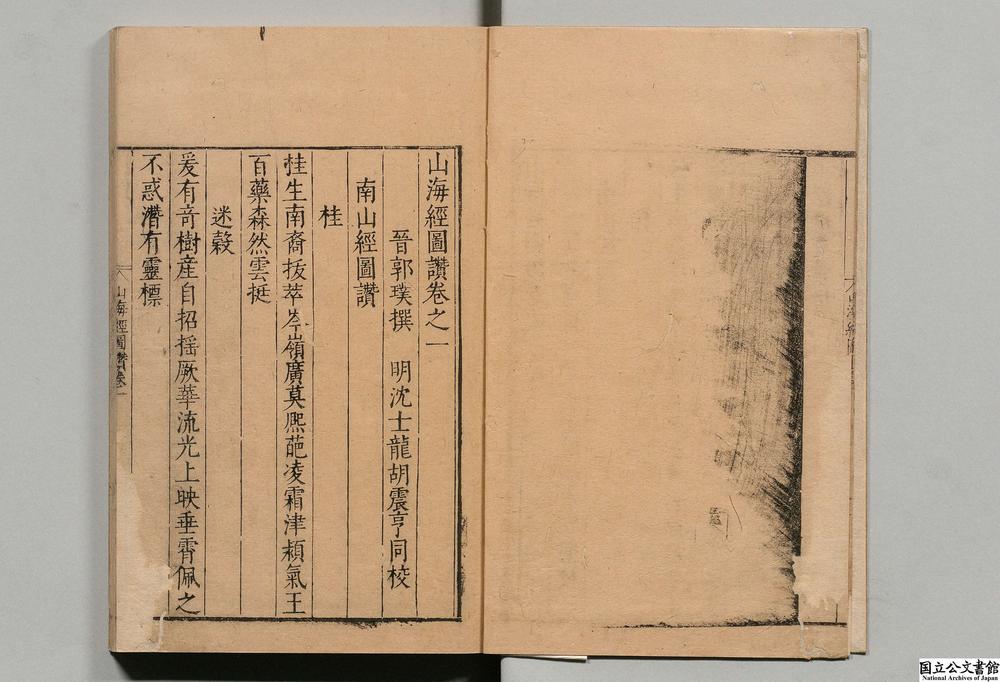 山海經圖讚卷之一
晉郭璞撰　明沈士龍胡震亨同校
南山經圖讚
桂
桂生南裔拔萃岑嶺廣莫熙葩凌霜津穎氣王
百藥森然雲挺
迷穀
爰有奇樹産自招揺厥華流光上映垂霄佩之
不惑潛有靈標
山海經圖讚卷一
国立公文書館
National Archives of Japan